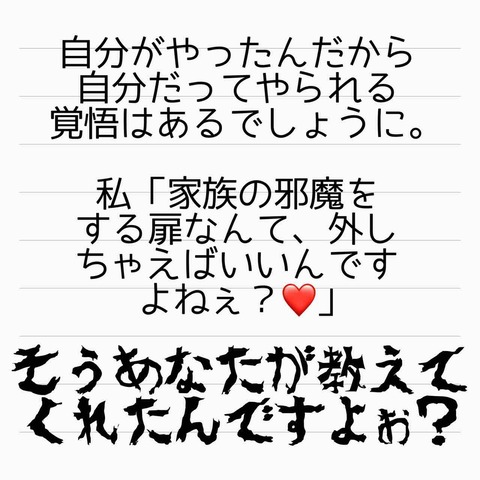 自分がやったんだから
自分だってやられる
覚悟はあるでしょうに。
私「家族の邪魔を
する扉なんて、外し
ちゃえばいいんです
よねぇ？❤️」
そうあなたが教えて
くれたんですよぉ？